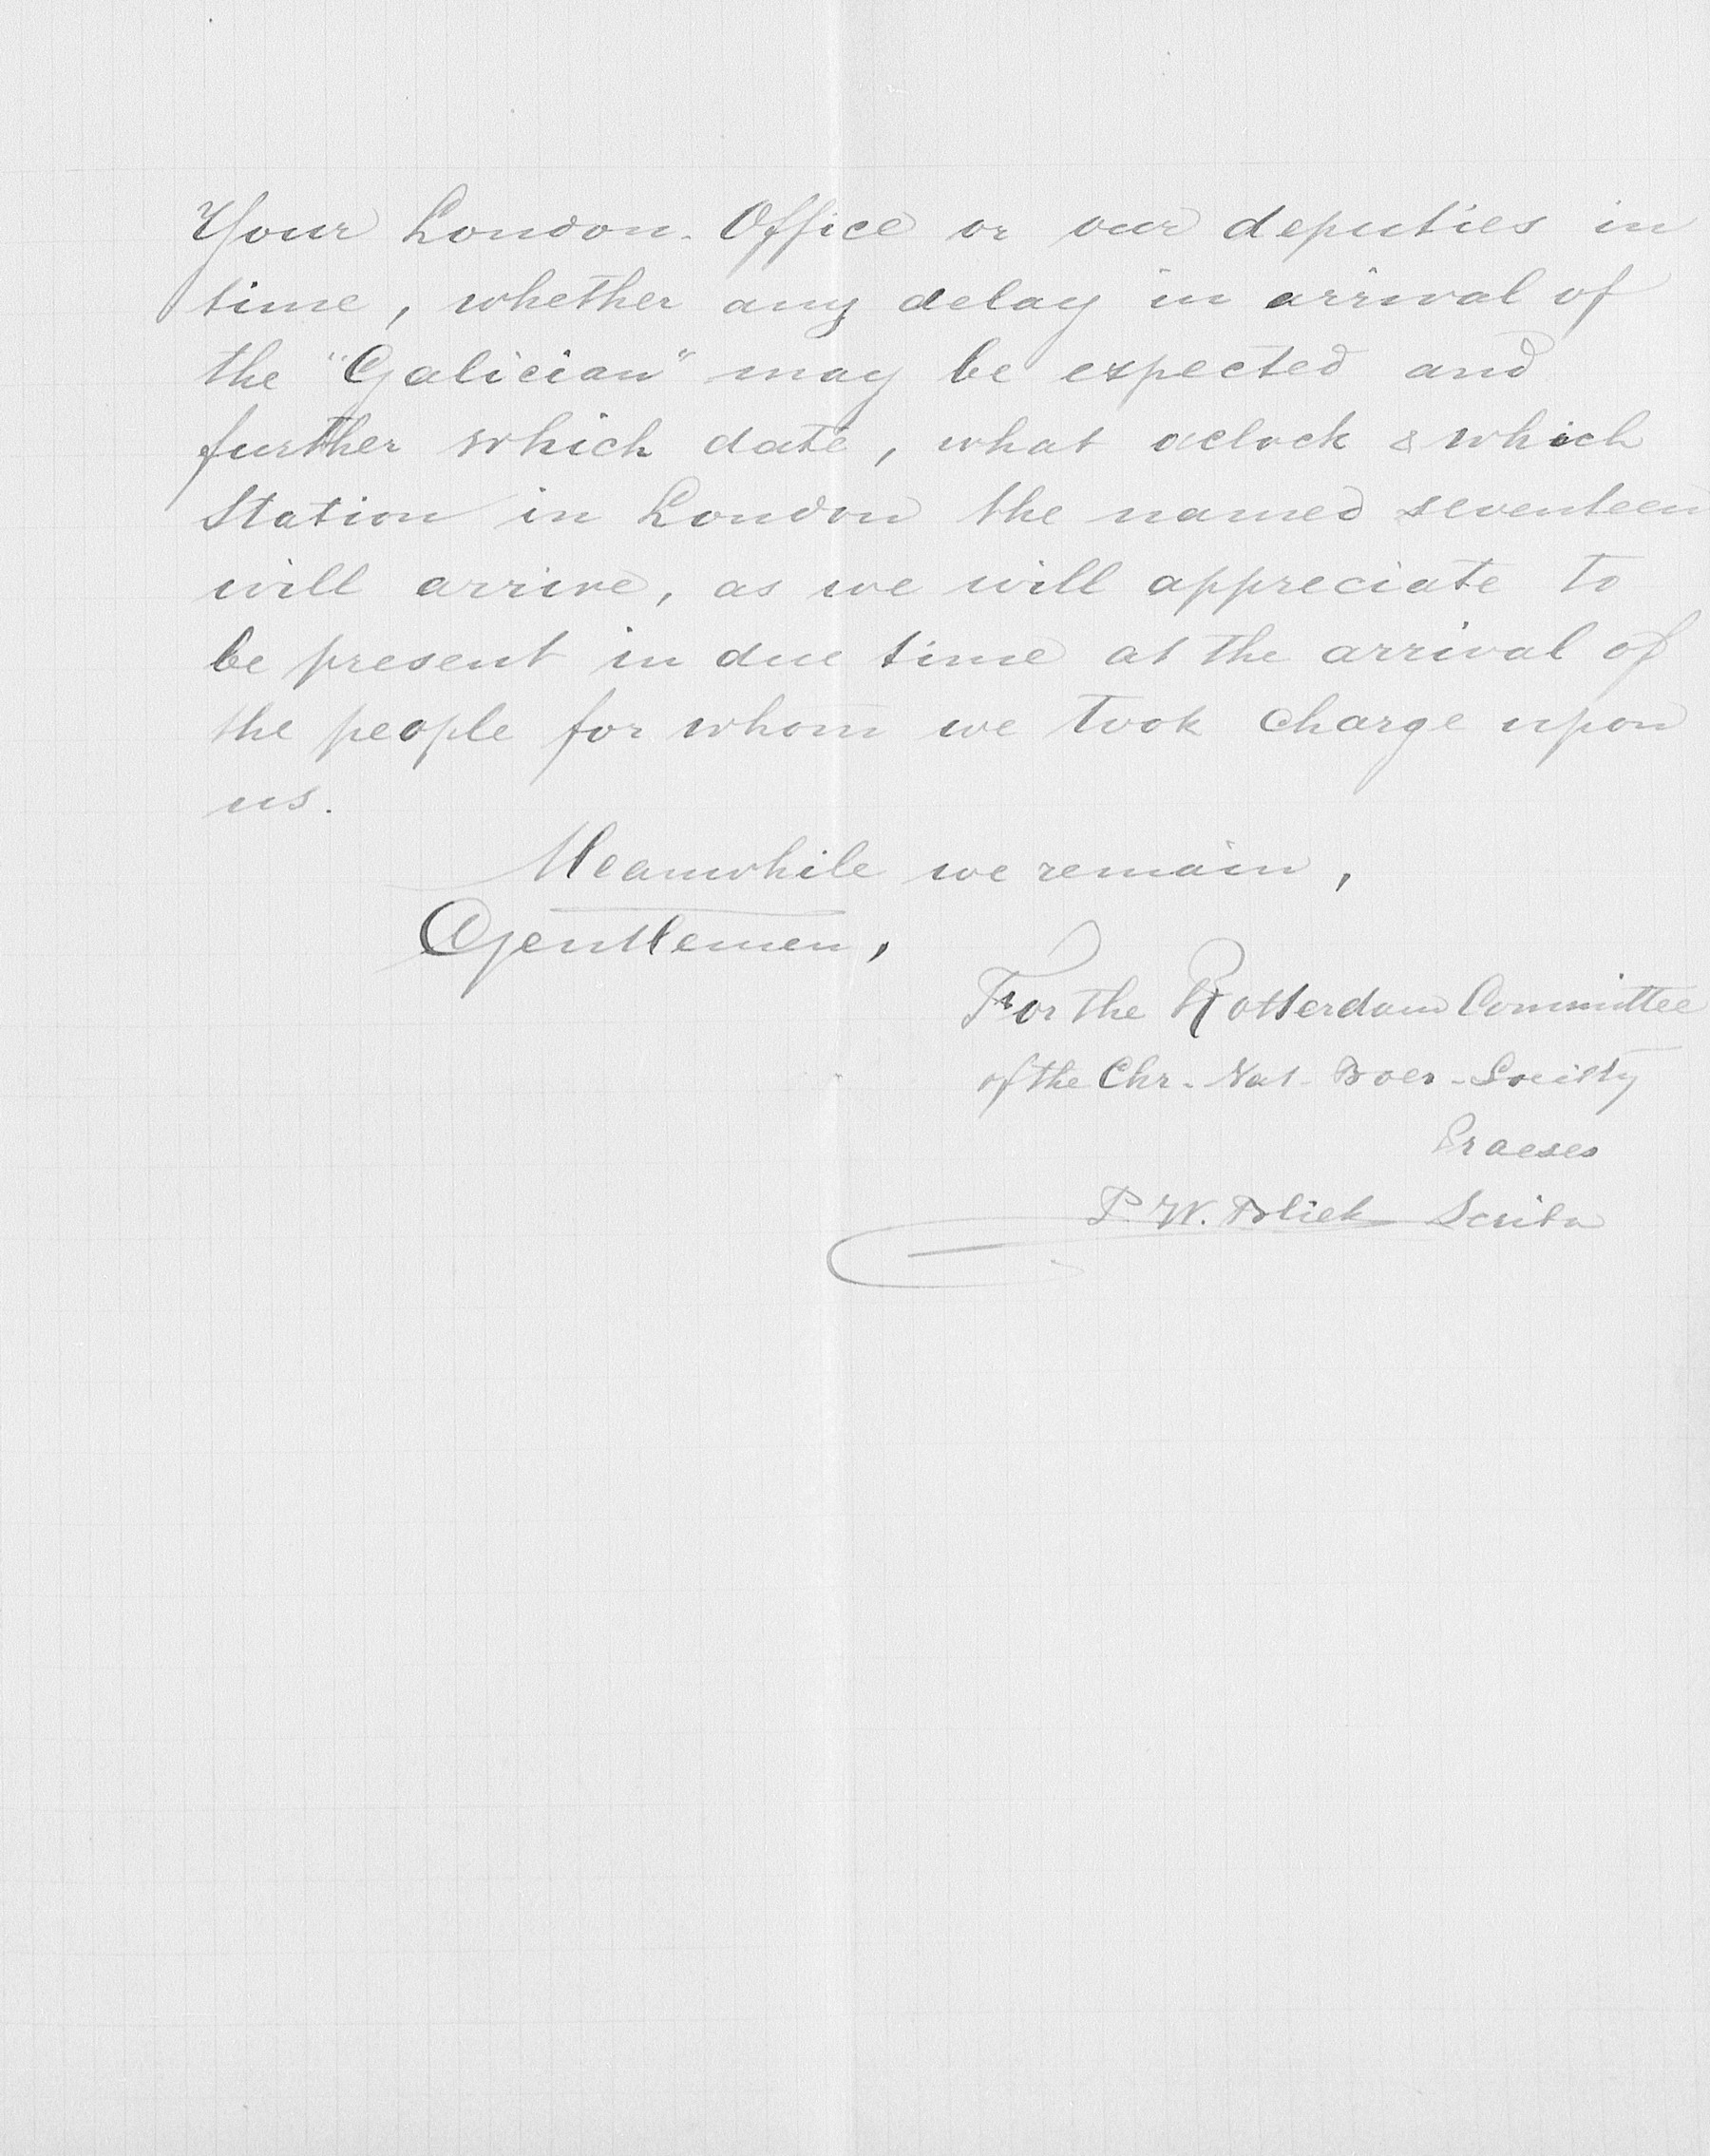 Your London-Office or our deputies in
time, whether any delay in arrival of
the "Galician" may be expected and
further which date, what oclock & which
Station in London the named seventeen
will arrive, as we will appreciate to
be present in due time at the arrival of
the people for whom we took charge upon
us.
Meanwhile we remain,
Gentlemen,
For the Rotterdam Committee
of the Chr. Nat. Boer-Society
Praeses
P. W. Bliek Scriba